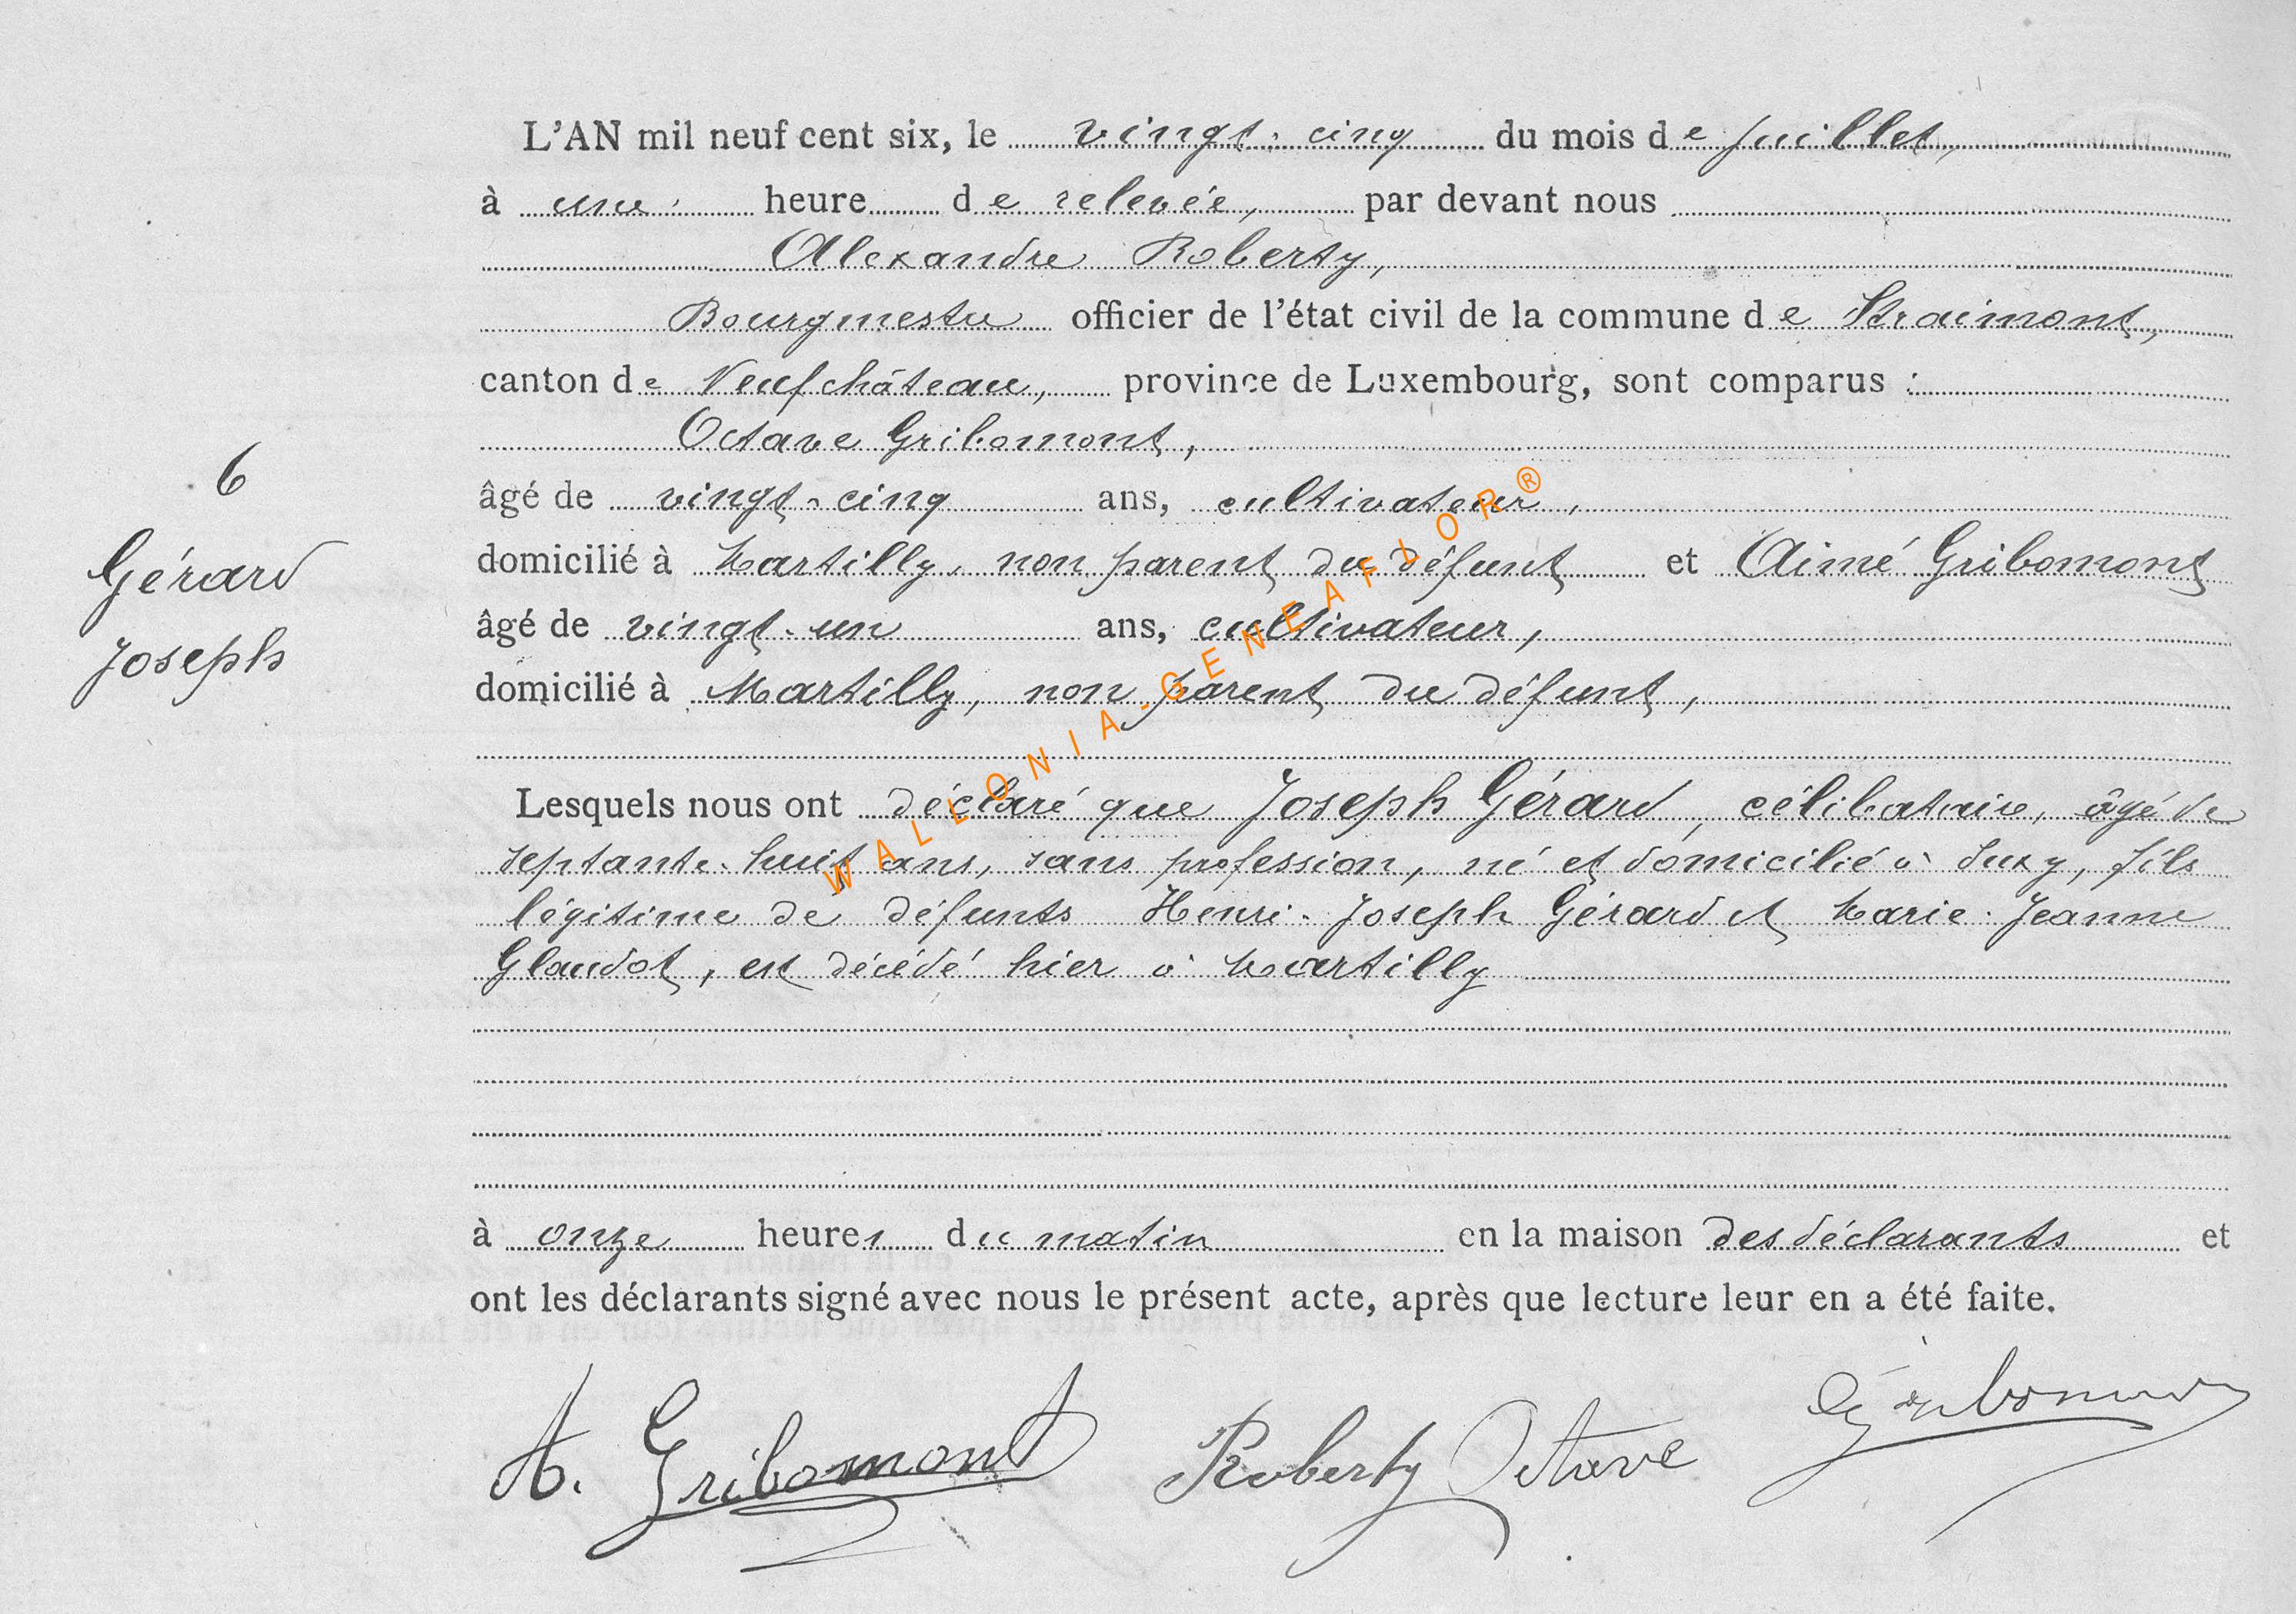 L'AN mil neuf cent six, le vingt-cinq du mois de juillet,
à une heure de relevée, par devant nous
Alexandre Roberty,
Bourgmestre officier de l'état civil de la commune de Straimont,
canton de Neufchâteau, province de Luxembourg, sont comparus :
Octave Gribomont,
6
âgé de vingt-cinq ans, cultivateur,
Gérard
domicilié à Martilly, non parent du défunt et Aimé Gribomont
âgé de vingt-un ans, cultivateur,
Joseph
domicilié à Martilly, non parent du défunt,
Lesquels nous ont déclaré que Joseph Gérard, célibataire, âgé de
septante-huit ans, sans profession, né et domicilié à Suxy, fils
légitime de défunts Henri-Joseph Gérard et Marie-Jeanne
Glaudot, est décédé hier à Martilly
à onze heures du matin en la maison des déclarants et
ont les déclarants signé avec nous le présent acte, après que lecture leur en a été faite.
A. Gribomont Roberty Octave Gribomont
WALLONIA-GENEAFLOR®